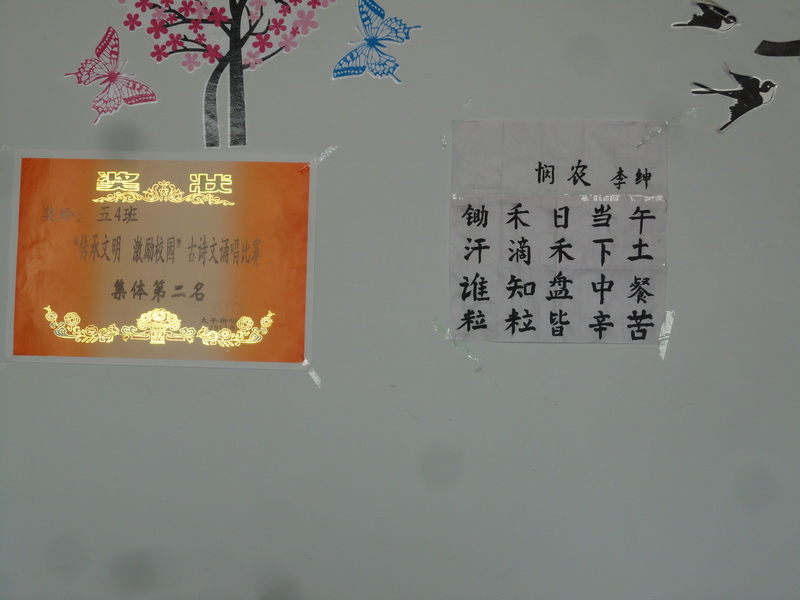 奖状
五4班
"传承文明 激励校园"古诗文诵唱比赛
集体第二名
悯农 李绅
锄禾日当午
汗滴禾下土
谁知盘中餐
粒粒皆辛苦